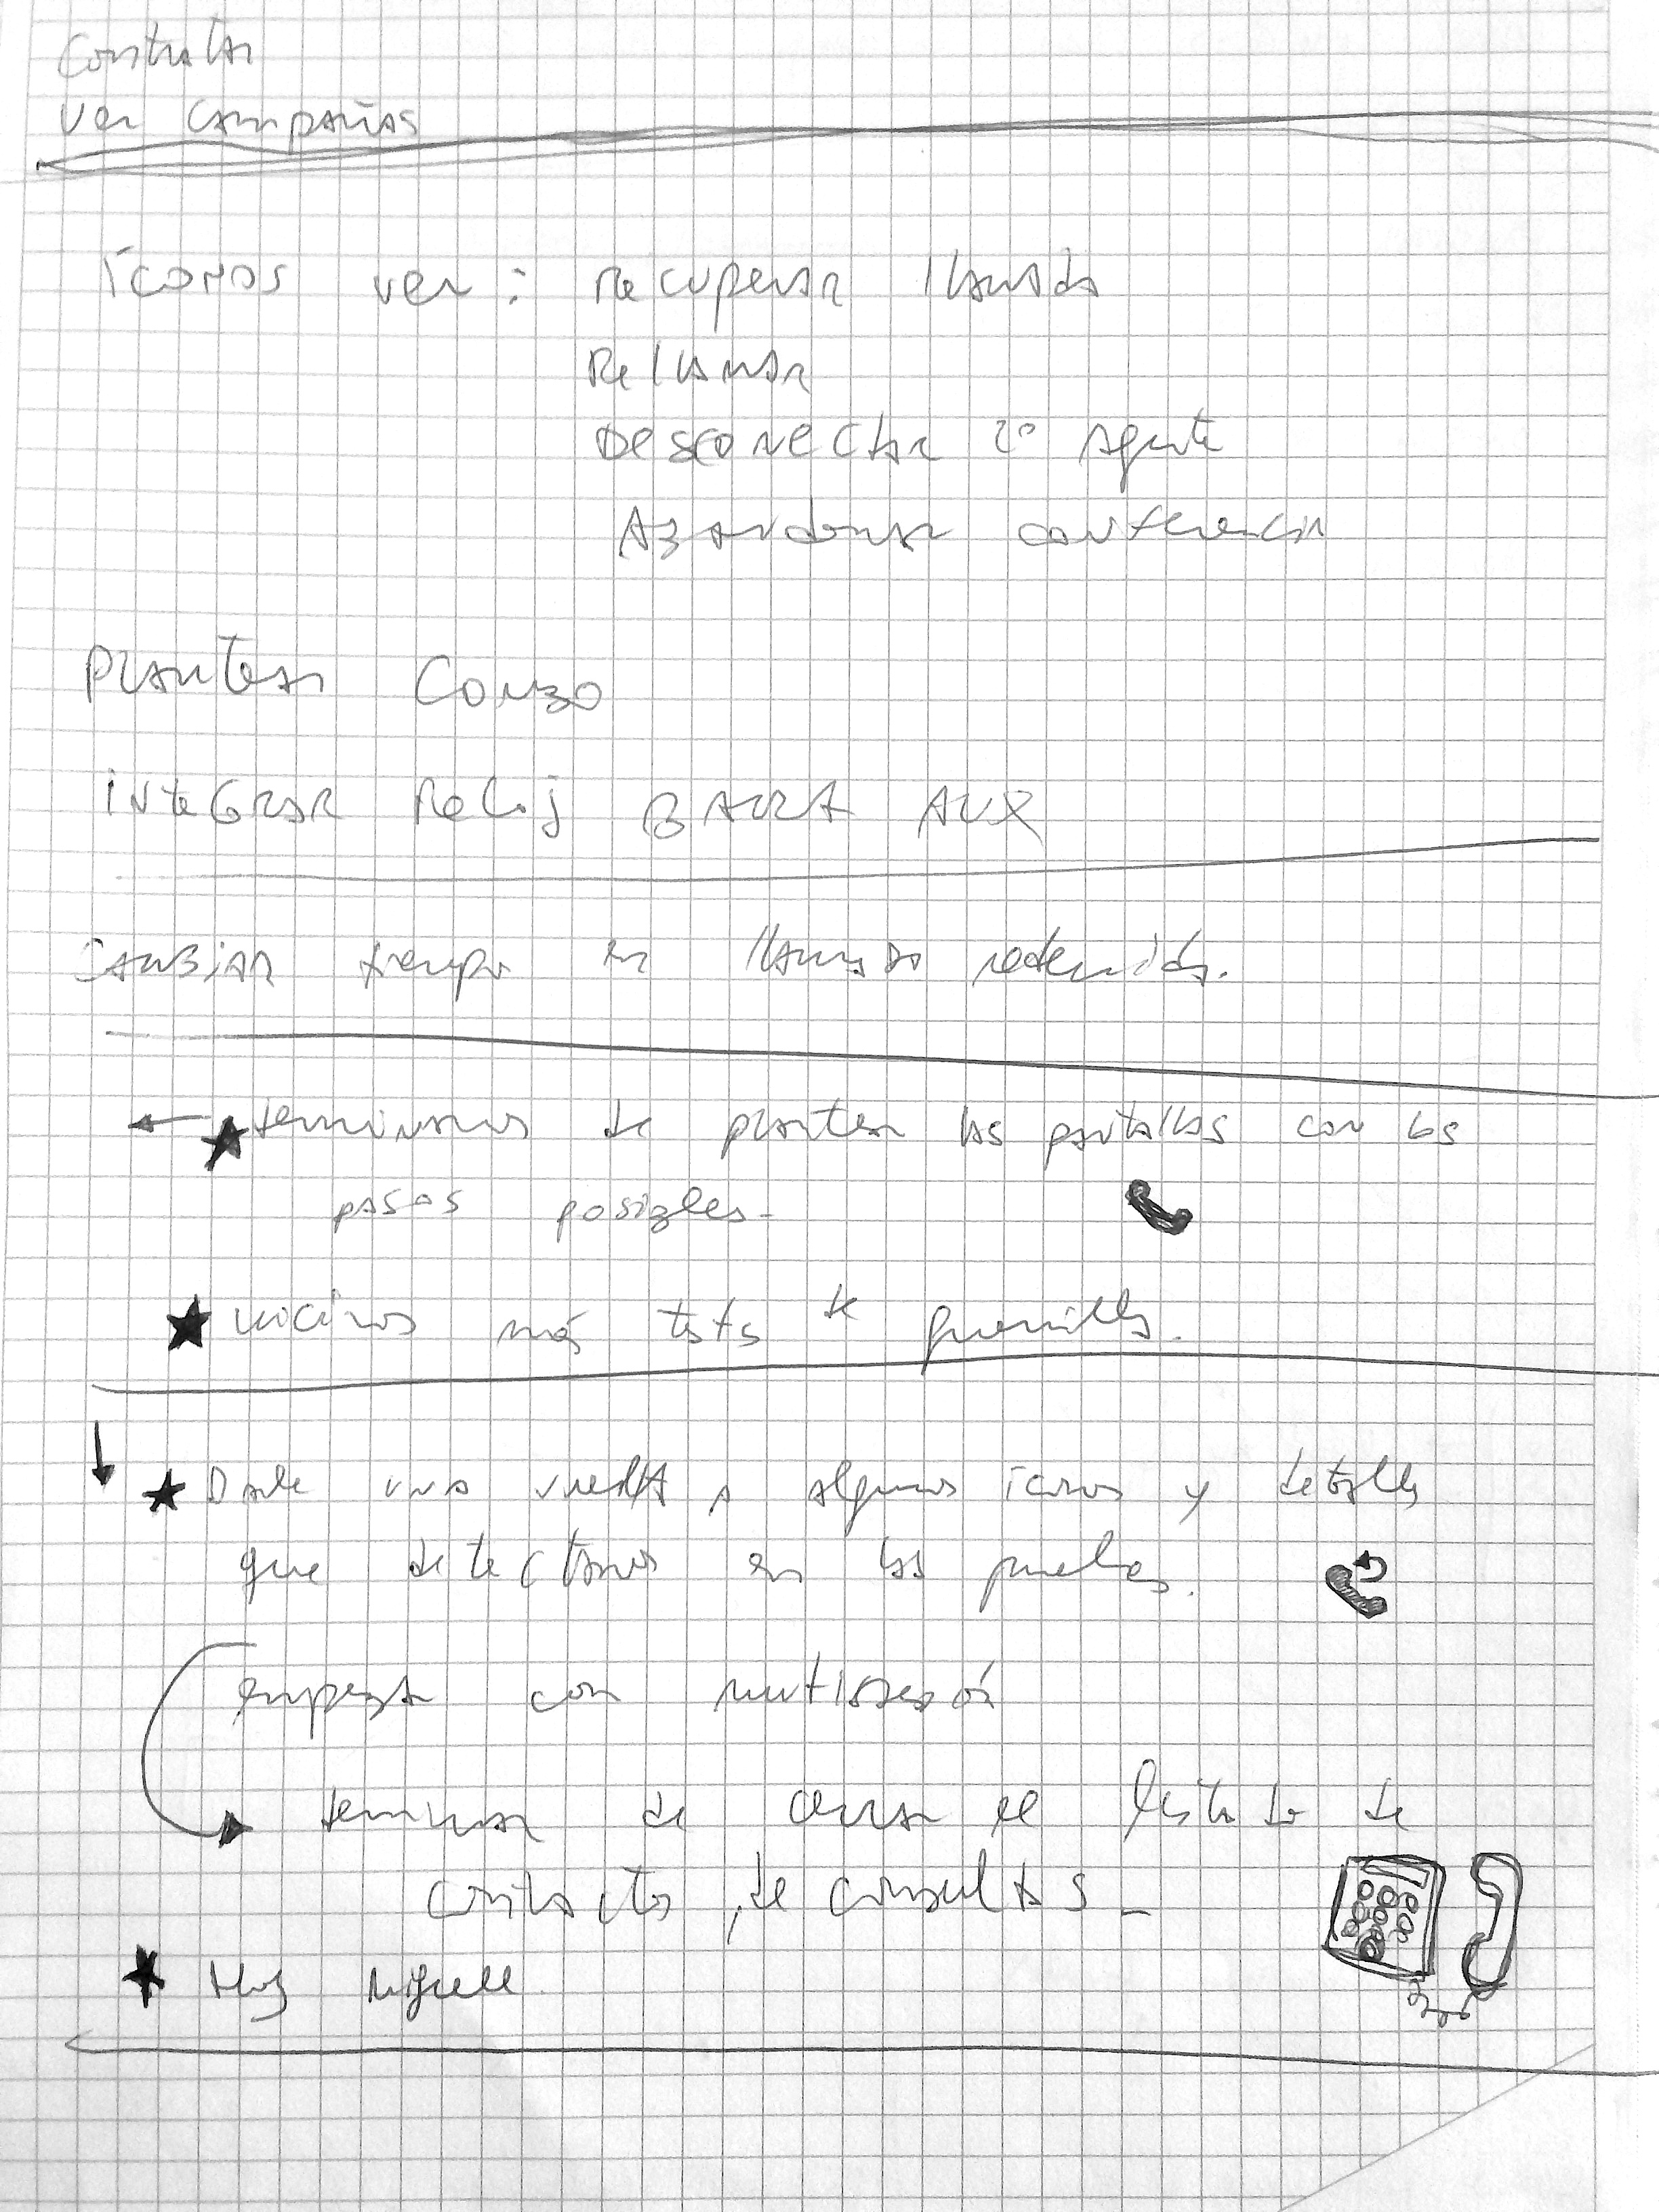 Contratar
ver campañas
íconos ver: recuperar llamada
Rellamar
Desconectar 2º Agente
Abandonar conferencia
Plantear Combo
integrar Reloj BARRA AUX
Cambiar tiempo en llamada retenida.
terminamos de plantear las pantallas con los
pasos posibles-
hicimos más tests de guerrilla.
Darle una vuelta a algunos iconos y detalles
que detectamos en las pruebas.
empezar con multisesión
terminar de cerrar el listado de
contactos, de consultas -